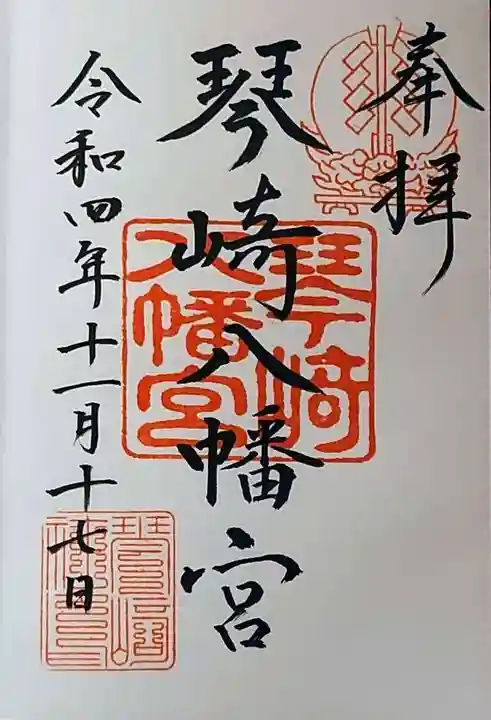 奉拝
琴崎八幡宮
琴崎八幡宮
令和四年十一月十七日